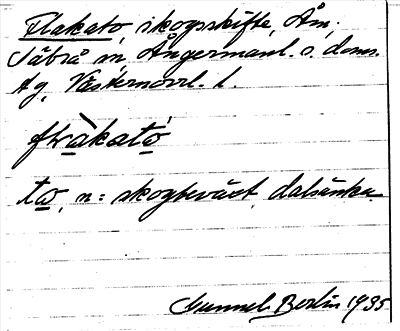 Flakato, skogsskifte, Åm,
Säbrå sn, Ångermanl. s. doms.
tg, Västernorrl. l.
flàkatò
to, n: skogbeväxt dalsänka.
Gunnel Berlin 1935